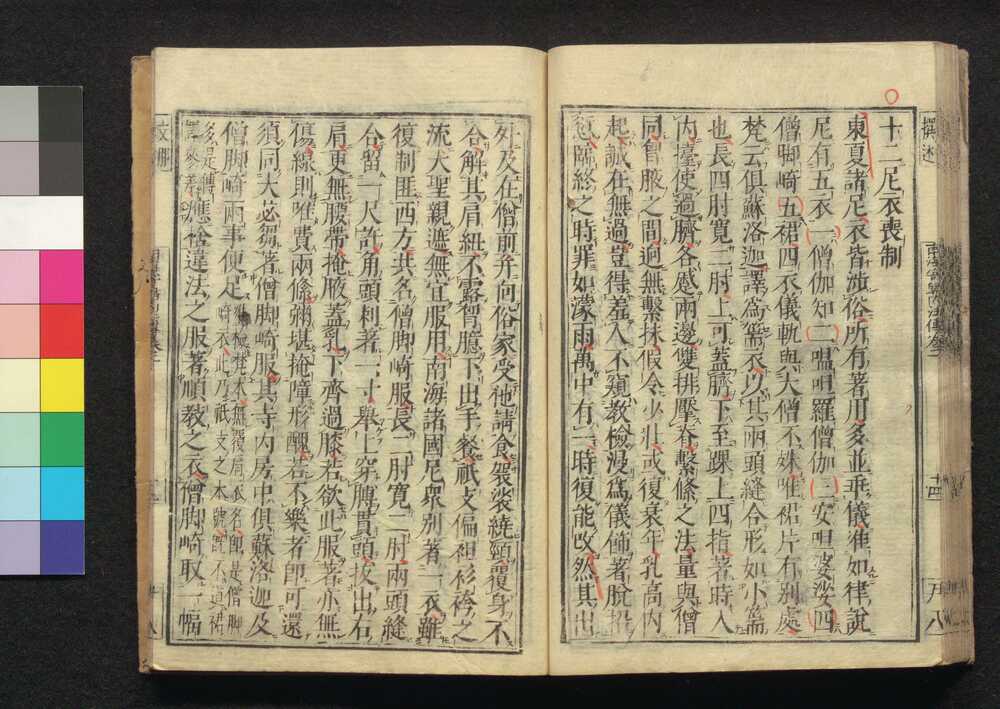 十二尼衣喪制
東夏諸尼衣皆渉俗所有著用多並乖儀准如律說
尼有五衣一僧伽知二嗢呾羅僧伽三安呾婆娑四
僧脚崎五裙四衣儀軌與大僧不殊唯裙片有別處
梵云俱蘇洛迦譯爲篅衣以其兩頭縫合形如小篅
也長四肘寬二肘上可蓋臍下至踝上四指著時入
內擡使過臍各蹙兩邊雙排壓脊繫絛之法量與僧
同胷腋之間逈無繫抹假令少壯或復衰年乳高肉
起誠在無過豈得羞人不窺教檢漫爲儀飾著脫招
愆臨終之時罪如濛雨萬中有一時復能改然其出
外及在僧前并向俗家受他請食袈裟繞頸覆身不
合解其肩紐不露胷臆下出手餐祇支偏袒衫袴之
流大聖親遮無宜服用南海諸國尼衆別著一衣雖
復制匪西方共名僧脚崎服長二肘寬二肘兩頭縫
合留一尺許角頭刺著一寸舉上穿膊貫頭拔出右
肩更無腰帶掩腋蓋乳下齊過膝若欲此服著亦無
傷線則唯費兩條彌堪掩障形醜若不樂者卽可還
須同大苾芻著僧脚崎服其寺內房中俱蘇洛迦及
僧脚崎兩事便足
無覆肩衣名卽是僧脚
崎衣此乃祇支之本號旣不道裙
多是傳
應捨違法之服著順教之衣僧脚崎取一幅
撰述
十四